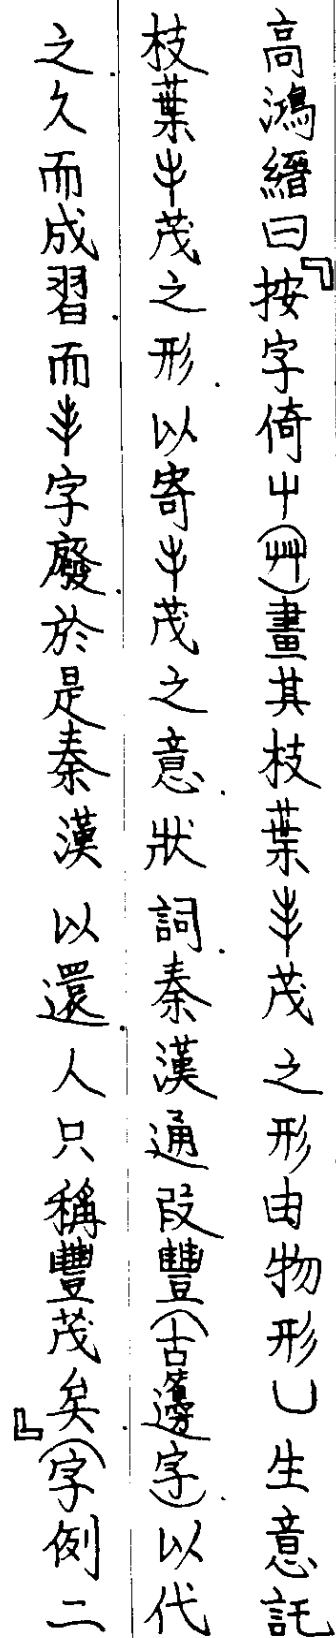 高鴻縉曰『按字倚屮(艸)畫其枝葉丰茂之形由物形乚生意託
枝葉丰茂之形.以寄丰茂之意.狀詞.秦漢通叚豐(古籩字).以代
之.久而成習.而丰字廢.於是秦漢以還.人只稱豐茂矣.』(字例二